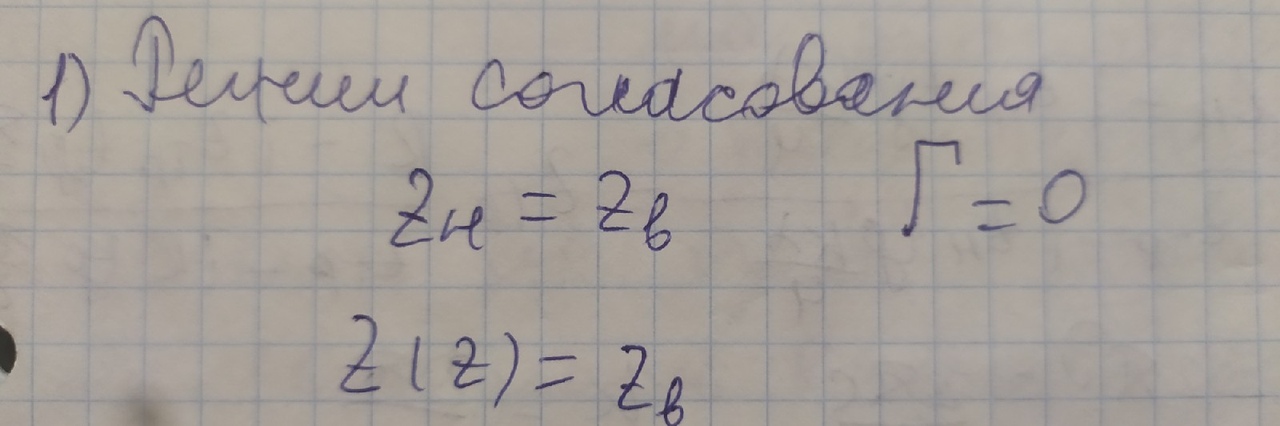 1) Режим согласования
Zн = Zв Г = 0
Z(z) = Zв